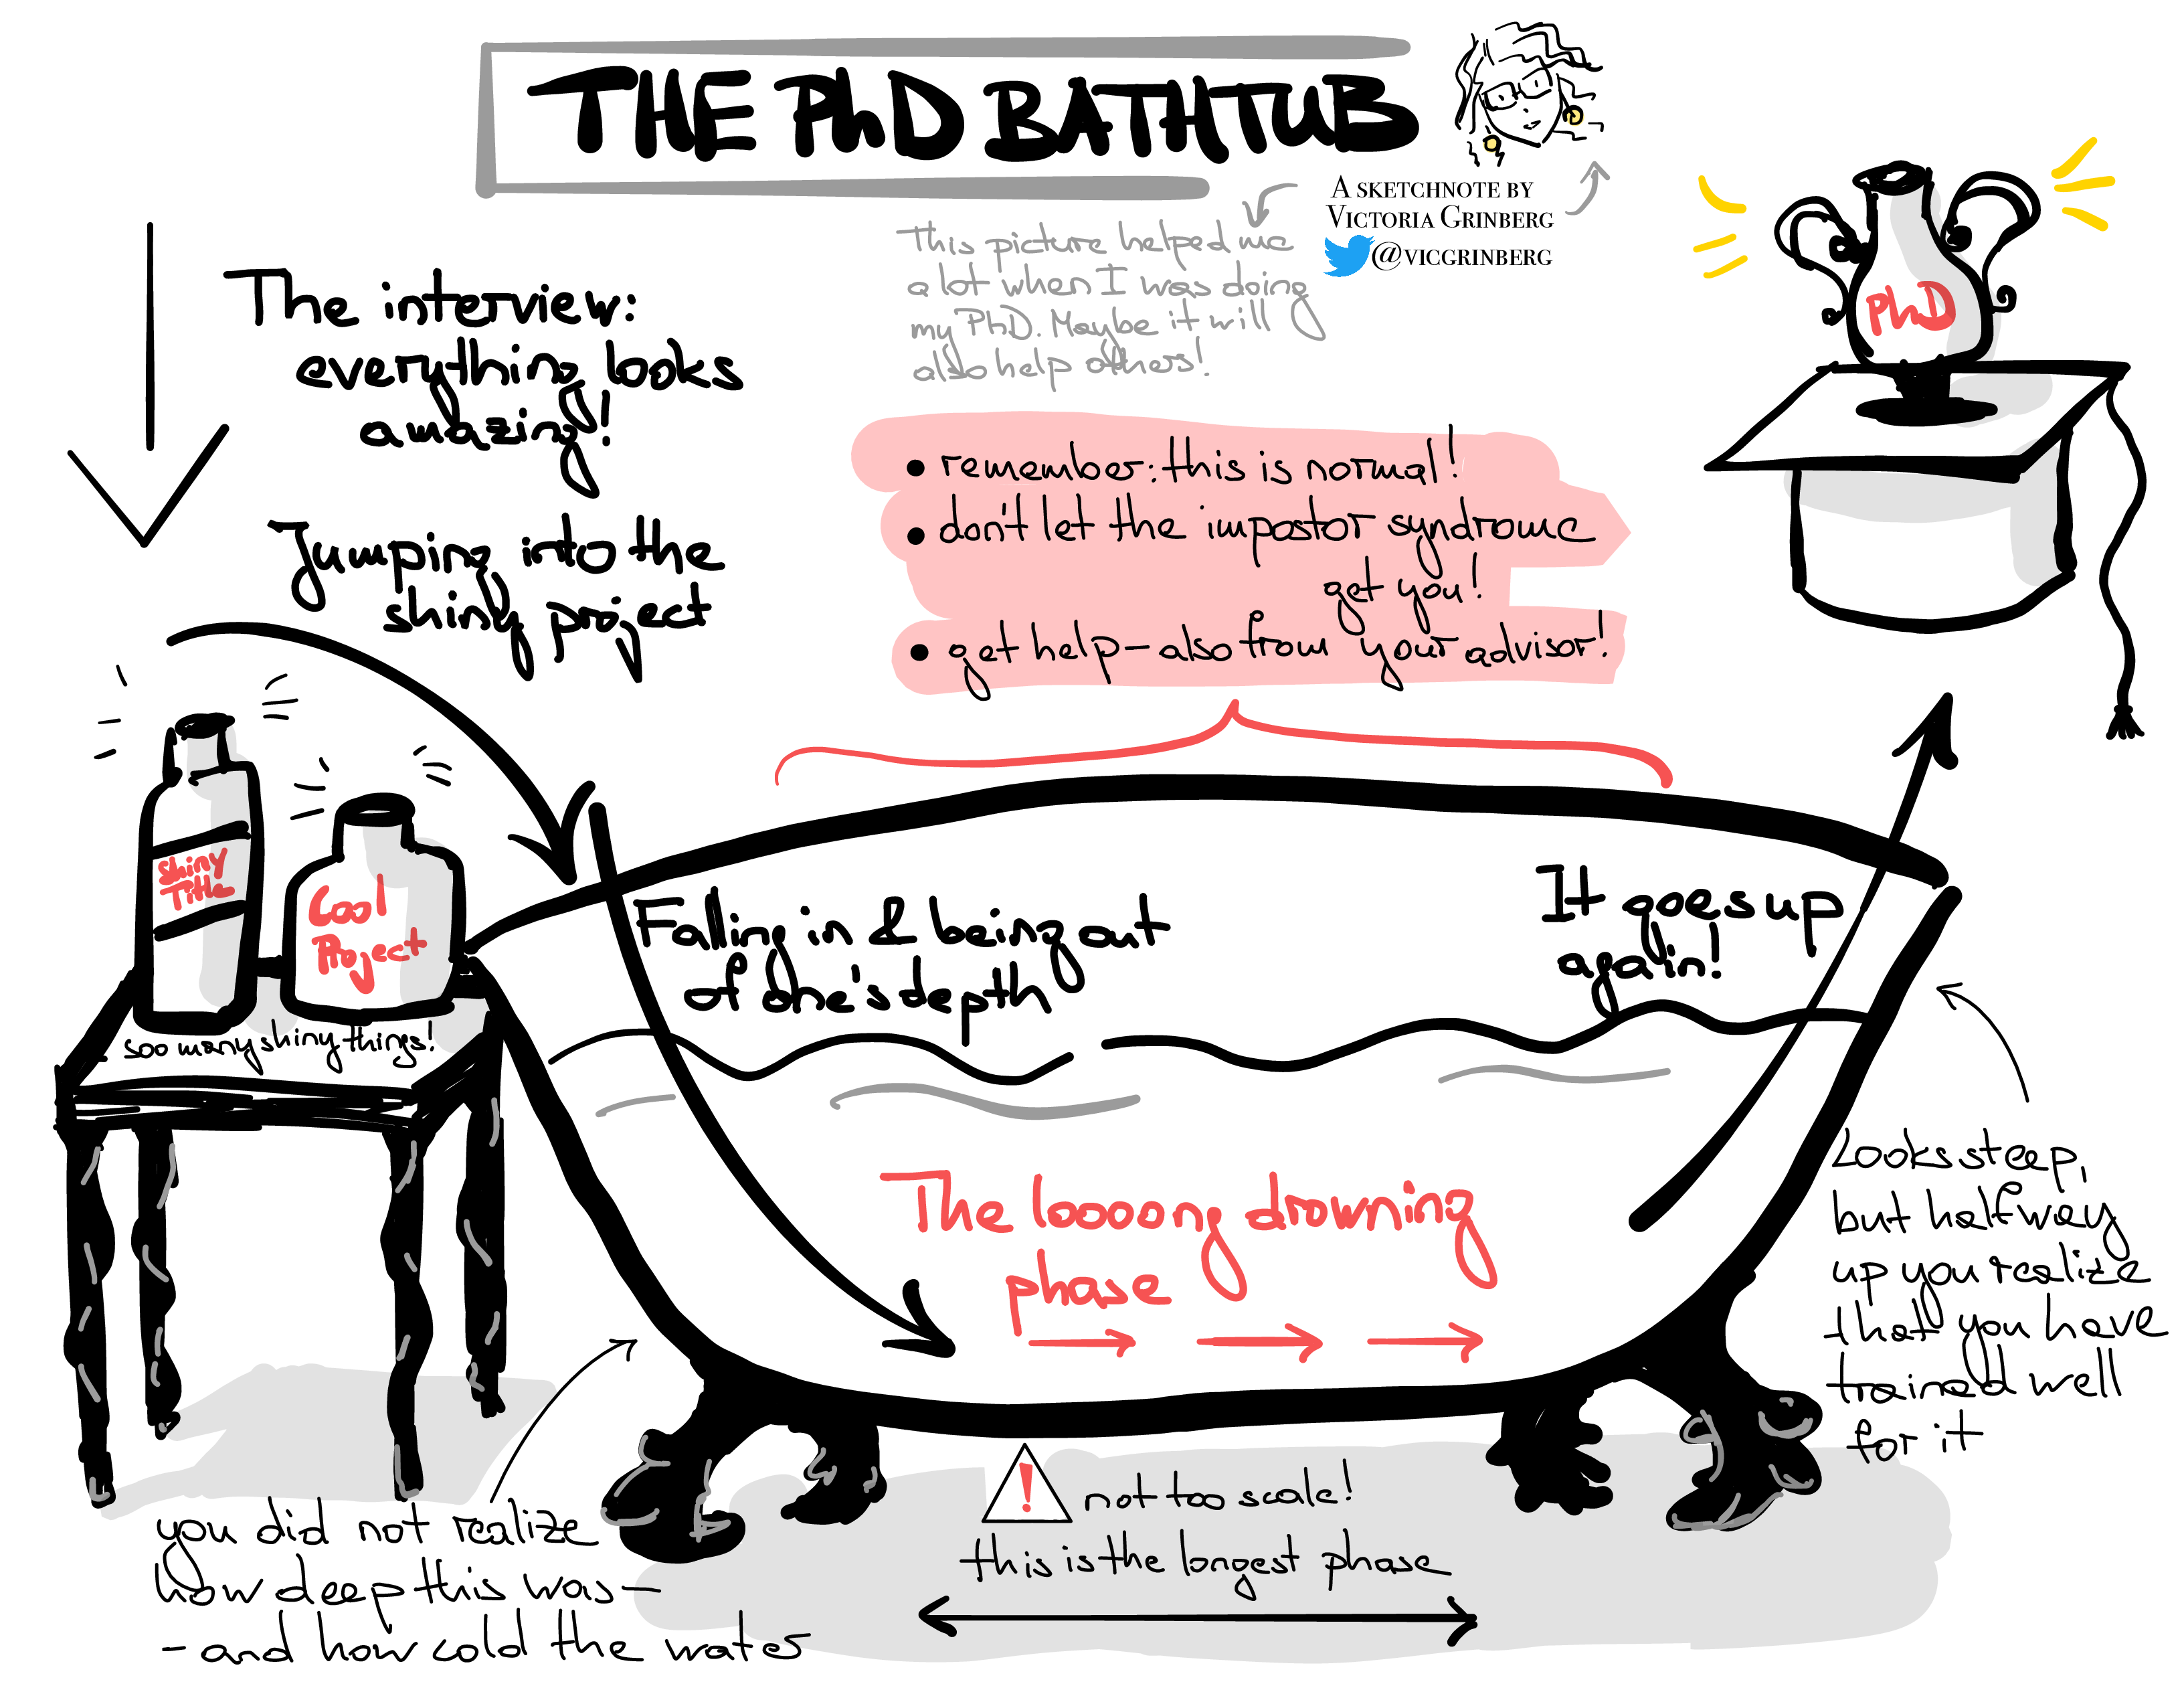 THE PhD BATHTUB
A SKETCHNOTE BY
VICTORIA GRINBERG
@VICGRINBERG
This picture helped me
a lot when I was doing
my PhD. Maybe it will
also help others!
The interview:
everything looks
amazing!
Jumping into the
shiny project
PhD
• remember: this is normal!
• don't let the impostor syndrome
get you!
• get help – also from your advisor!
shiny
Title
Cool
Project
soo many shiny things!
Falling in & being out
of one's depth
It goes up
again!
The looooong drowning
phase
Looks steep,
but halfway
up you realize
that you have
trained well
for it
you did not realize
how deep this was –
– and how cold the water
! not too scale!
this is the longest phase